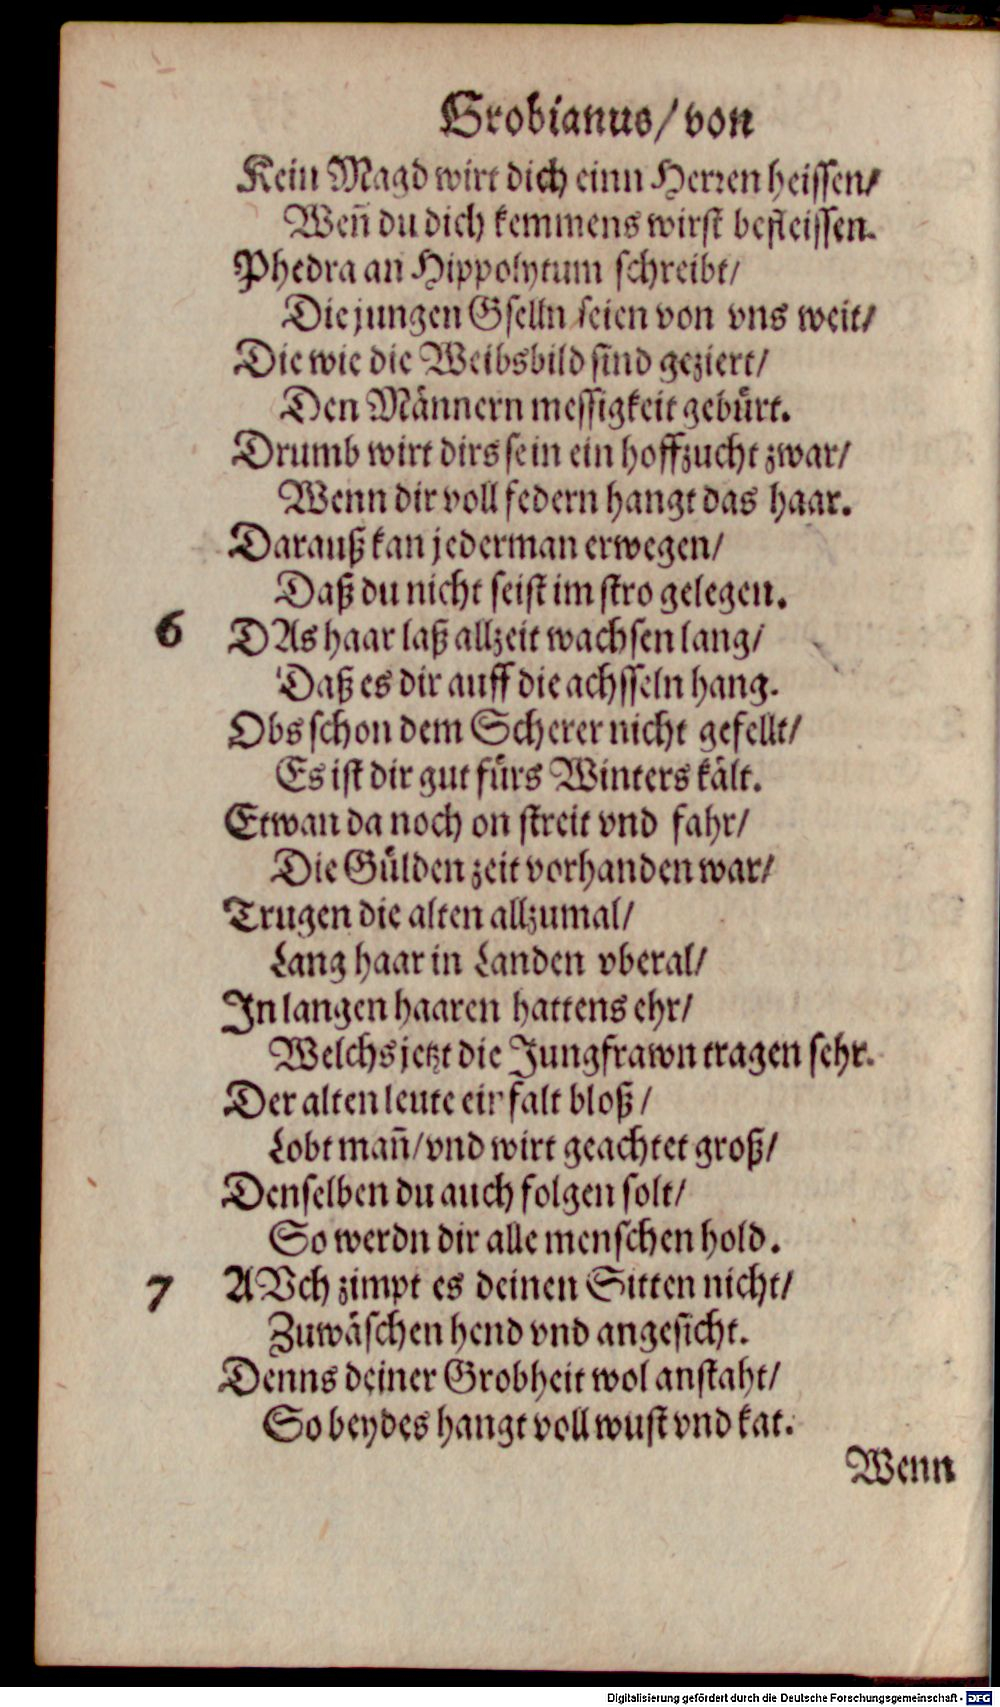 Grobianus/ von
Kein Magd wirt dich einn Herren heissen/
Weñ du dich kemmens wirst befleissen.
Phedra an Hippolytum schreibt/
Die jungen Gselln seien von vns weit/
Die wie die Weibsbild sind geziert/
Den Männern messigkeit gebürt.
Drumb wirt dirs sein ein hoffzucht zwar/
Wenn dir voll federn hangt das haar.
Darauß kan jederman erwegen/
Daß du nicht seist im stro gelegen.
6 DAs haar laß allzeit wachsen lang/
Daß es dir auff die achsseln hang.
Obs schon dem Scherer nicht gefellt/
Es ist dir gut fürs Winters kält.
Etwan da noch on streit vnd fahr/
Die Gülden zeit vorhanden war/
Trugen die alten allzumal/
Lang haar in Landen vberal/
In langen haaren hattens ehr/
Welchs jetzt die Jungfrawn tragen sehr.
Der alten leute einfalt bloß/
Lobt mañ/ vnd wirt geachtet groß/
Denselben du auch folgen solt/
So werdn dir alle menschen hold.
7 AVch zimpt es deinen Sitten nicht/
Zuwäschen hend vnd angesicht.
Denns deiner Grobheit wol anstaht/
So beydes hangt voll wust vnd kat.
Wenn
Digitalisierung gefördert durch die Deutsche Forschungsgemeinschaft - DFG